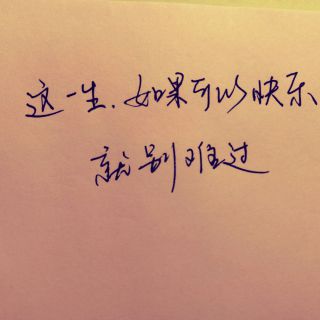 这一生.如果可以快乐
就别难过